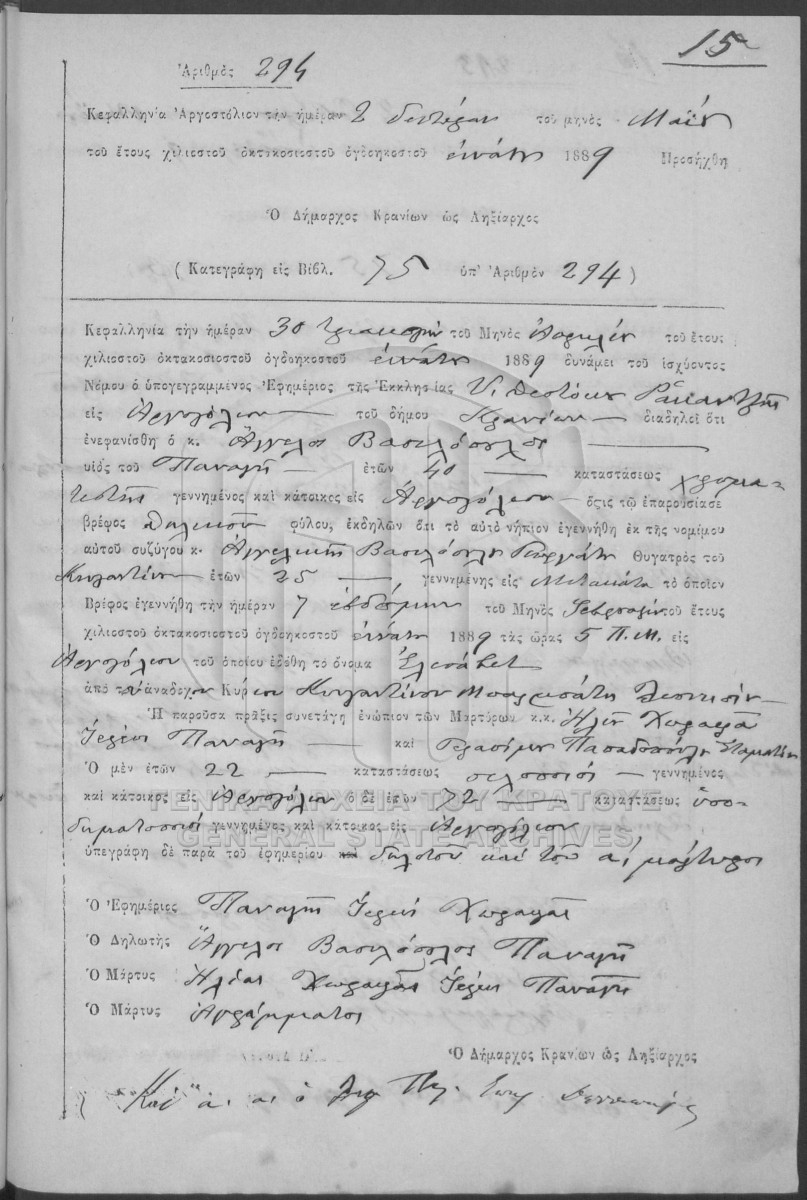 15
Ἀριθμὸς 294
Κεφαλληνία Ἀργοστόλιον τὴν ἡμέραν 2 δευτέραν τοῦ μηνὸς Μαΐου
τοῦ ἔτους χιλιοστοῦ ὀκτακοσιοστοῦ ὀγδοηκοστοῦ ἐννάτου 1889 Προσήχθη
Ὁ Δήμαρχος Κρανίων ὡς Ληξίαρχος
(Κατεγράφη εἰς Βιβλ. 75 ὑπ' Ἀριθμὸν 294)
Κεφαλληνία τὴν ἡμέραν 30 τριακοστὴν τοῦ Μηνὸς Ἀπριλίου τοῦ ἔτους
χιλιοστοῦ ὀκτακοσιοστοῦ ὀγδοηκοστοῦ ἐννάτου 1889 δυνάμει τοῦ ἰσχύοντος
Νόμου ὁ ὑπογεγραμμένος Ἐφημέριος τῆς Ἐκκλησίας Υ. Θεοτόκου
εἰς Ἀργοστόλιον τοῦ δήμου Κρανίων διαδηλοῖ ὅτι
ἐνεφανίσθη ὁ κ. Ἄγγελος Βασιλόπουλος
υἱὸς τοῦ Παναγῆ ἐτῶν 40 καταστάσεως χρωμα-
τιστὴς γεννημένος καὶ κάτοικος εἰς Ἀργοστόλιον ὅςτις τῷ ἐπαρουσίασε
βρέφος θηλυκοῦ φύλου, ἐκδηλῶν ὅτι τὸ αὐτὸ νήπιον ἐγεννήθη ἐκ τῆς νομίμου
αὐτοῦ συζύγου κ. Ἀγγελικῆς Βασιλοπούλου Θυγατρὸς τοῦ
Κωνσταντίνου ἐτῶν 25 γεννημένης εἰς Μεταξάτα τὸ ὁποῖον
Βρέφος ἐγεννήθη τὴν ἡμέραν 7 ἑβδόμην τοῦ Μηνὸς Φεβρουαρίου τοῦ ἔτους
χιλιοστοῦ ὀκτακοσιοστοῦ ὀγδοηκοστοῦ ἐννάτου 1889 τὰς ὥρας 5 Π.Μ. εἰς
Ἀργοστόλιον τοῦ ὁποίου ἐδόθη τὸ ὄνομα Ἐλισάβετ
ἀπὸ τὸν ἀνάδοχον Κύριον Κωνσταντῖνον
Ἡ παροῦσα πρᾶξις συνετάγη ἐνώπιον τῶν Μαρτύρων κ.κ. Ἠλία Χωραφᾶ
Ἱερέως Παναγῆ καὶ Γερασίμου Παπαδοπούλου Σταματίου
Ὁ μὲν ἐτῶν 22 καταστάσεως πιλοποιὸς γεννημένος
καὶ κάτοικος εἰς Ἀργοστόλιον ὁ δὲ ἐτῶν 72 καταστάσεως ὑπο-
δηματοποιὸς γεννημένος καὶ κάτοικος εἰς Ἀργοστόλιον
ὑπεγράφη δὲ παρὰ τοῦ ἐφημερίου δηλωτοῦ καὶ τοῦ α, μάρτυρος
ΓΕΝΙΚΑ ΑΡΧΕΙΑ ΤΟΥ ΚΡΑΤΟΥΣ
GENERAL STATE ARCHIVES
Ὁ Ἐφημέριος Παναγῆς Ἱερεὺς Χωραφᾶς
Ὁ Δηλωτὴς Ἄγγελος Βασιλόπουλος Παναγῆ
Ὁ Μάρτυς Ἠλίας Χωραφᾶς Ἱερέως Παναγῆ
Ὁ Μάρτυς Ἀγράμματος
Ὁ Δήμαρχος Κρανίων ὡς Ληξίαρχος